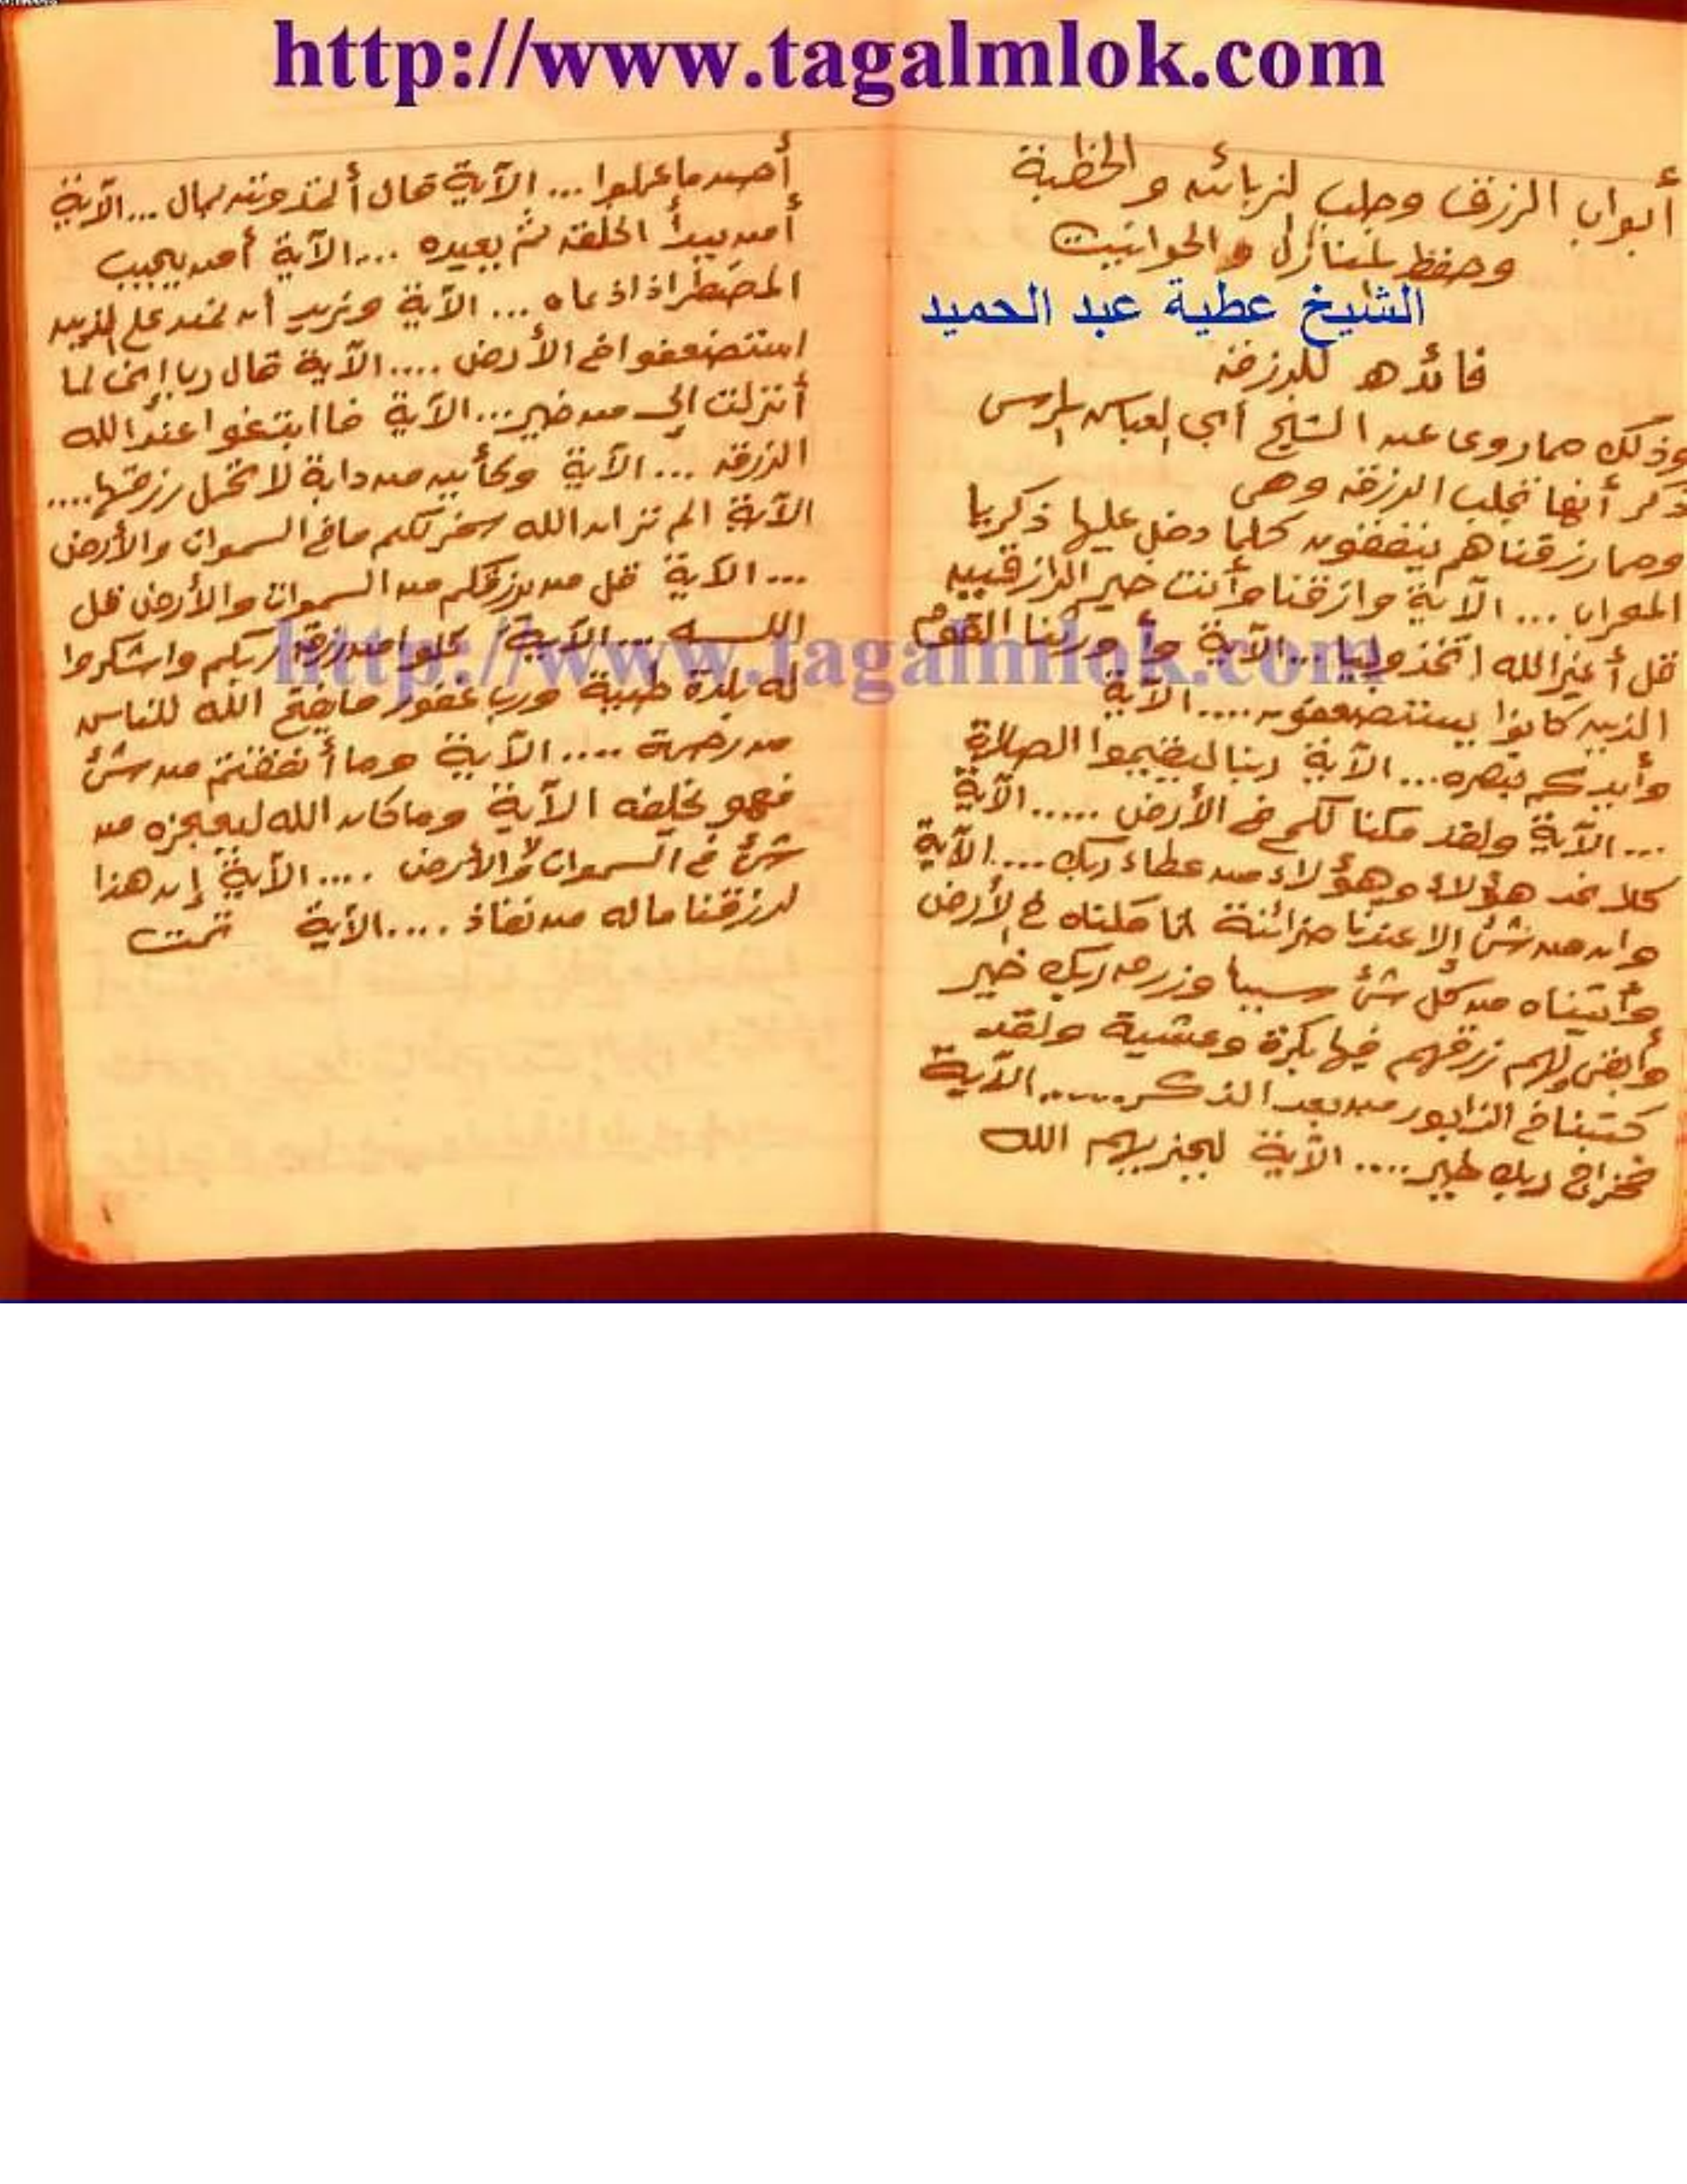 http://www.tagalmlok.com
أبواب الرزق وجلب لزبائن والخطبة
وحفظ لمنازل والحوانيت
الشيخ عطية عبد الحميد
فائده للرزق
وذلك مما روى عن الشيخ أبي العباس لمرسى
ذكر أنها تجلب الرزق وهى
ومما رزقناهم ينفقون كلما دخل عليها ذكريا
المحراب ... الآية وارزقنا وأنت خير الرازقيين
قل أغير الله اتخذ وليا ... الآية وأورثنا القوم
الذين كانوا يستضعفون .... الآية
وأيدكم بنصره ... الآية ربنا ليقيموا الصلاة
... الآية ولقد مكنا لكم فى الأرض ...... الآية
كلا نمد هؤلاء وهؤلاء من عطاء ربك .... الآية
وان من شئ إلا عندنا خزائنة انا مكناه فى الأرض
وأتيناه من كل شئ سببا وزرق ربك خير
وأبقى ولهم رزقهم فيها بكرة وعشية ولقد
كتبنا فى الزابور من بعد الذكر ...... الآية
فخراج ربك خير .... الآية ليجزيهم الله
أحسن ما عملوا ... الآية قال أتمدونن بمال ... الآية
أمن يبدأ الخلق ثم يعيده .... الآية أمن يجيب
المضطر اذا دعاه ... الآية ونريد أن نمن على الذين
استضعفوا فى الأرض .... الآية قال رب إنى لما
أنزلت إلى من خير ... الآية فاابتغوا عند الله
الرزق ... الآية وكأيين من دابة لا تحمل رزقها ....
الآية الم تر ان الله سخر لكم ما فى السموات والأرض
... الآية قل من يرزقكم من السموات والأرض قل
اللـــه ... الآية كلوا من رزق ربكم واشكروا
http://www.tagalmlok.com
له بلدة طيبة ورب غفور ما يفتح الله للناس
من رحمة .... الآية وما أنفقتم من شئ
فهو يخلفه الآية وما كان الله ليعجزه من
شئ فى السموات ولا فى الأرض .... الآية إن هذا
لرزقنا ماله من نفاذ .... الآية تمت